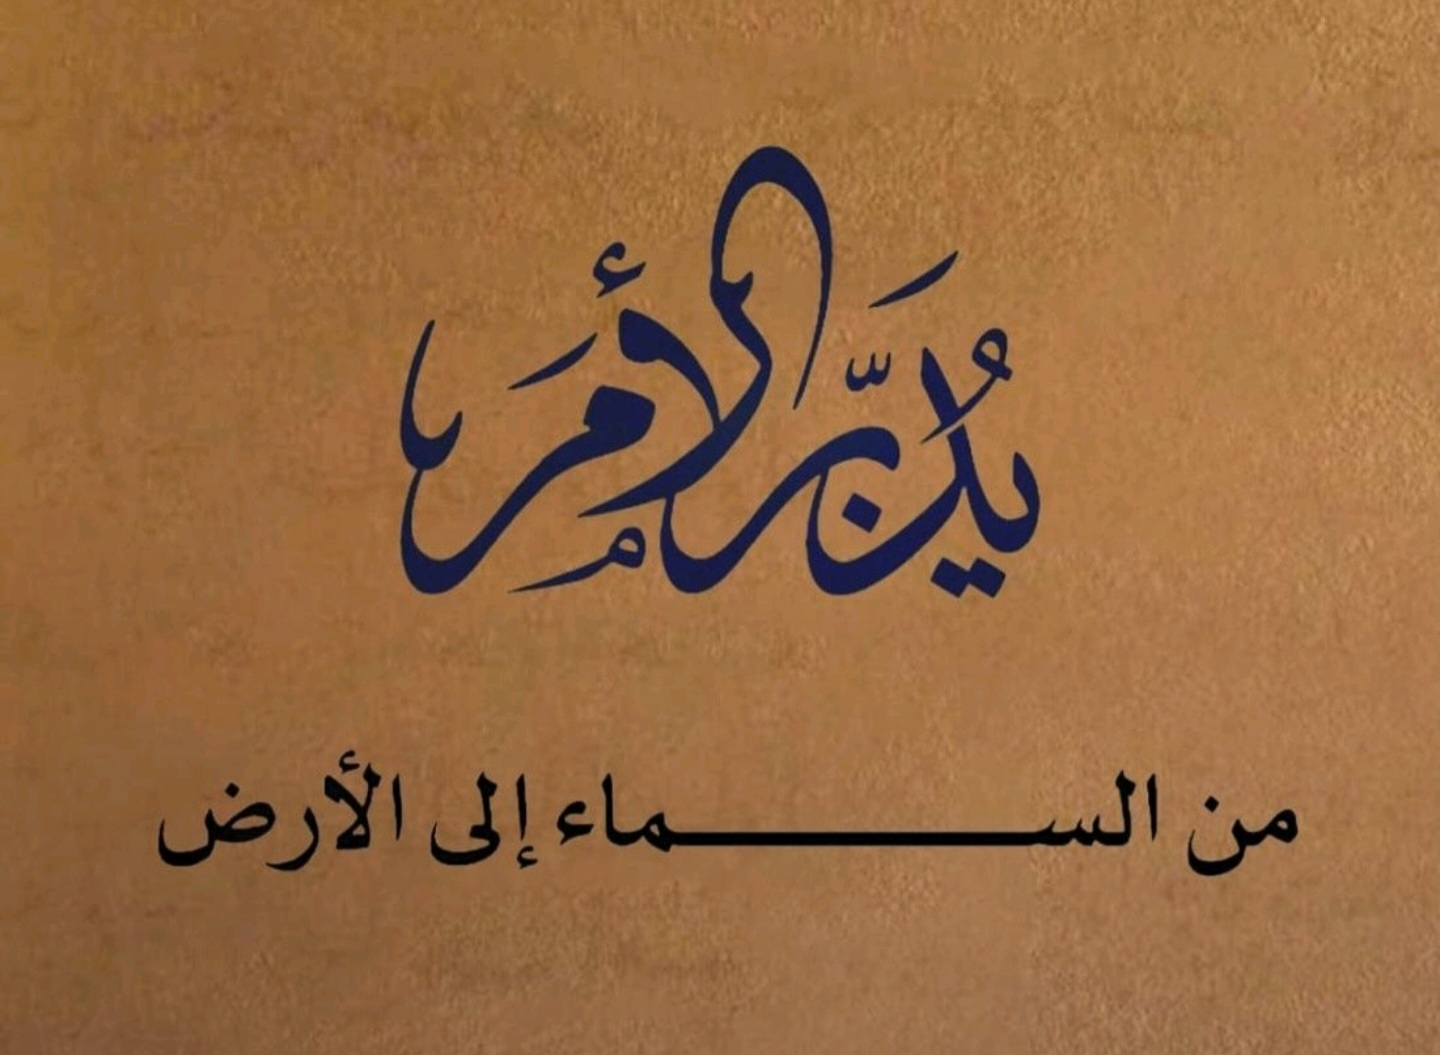 يُدَبِّرُ الأَمْرَ
من الســـــــــــماء إلى الأرض